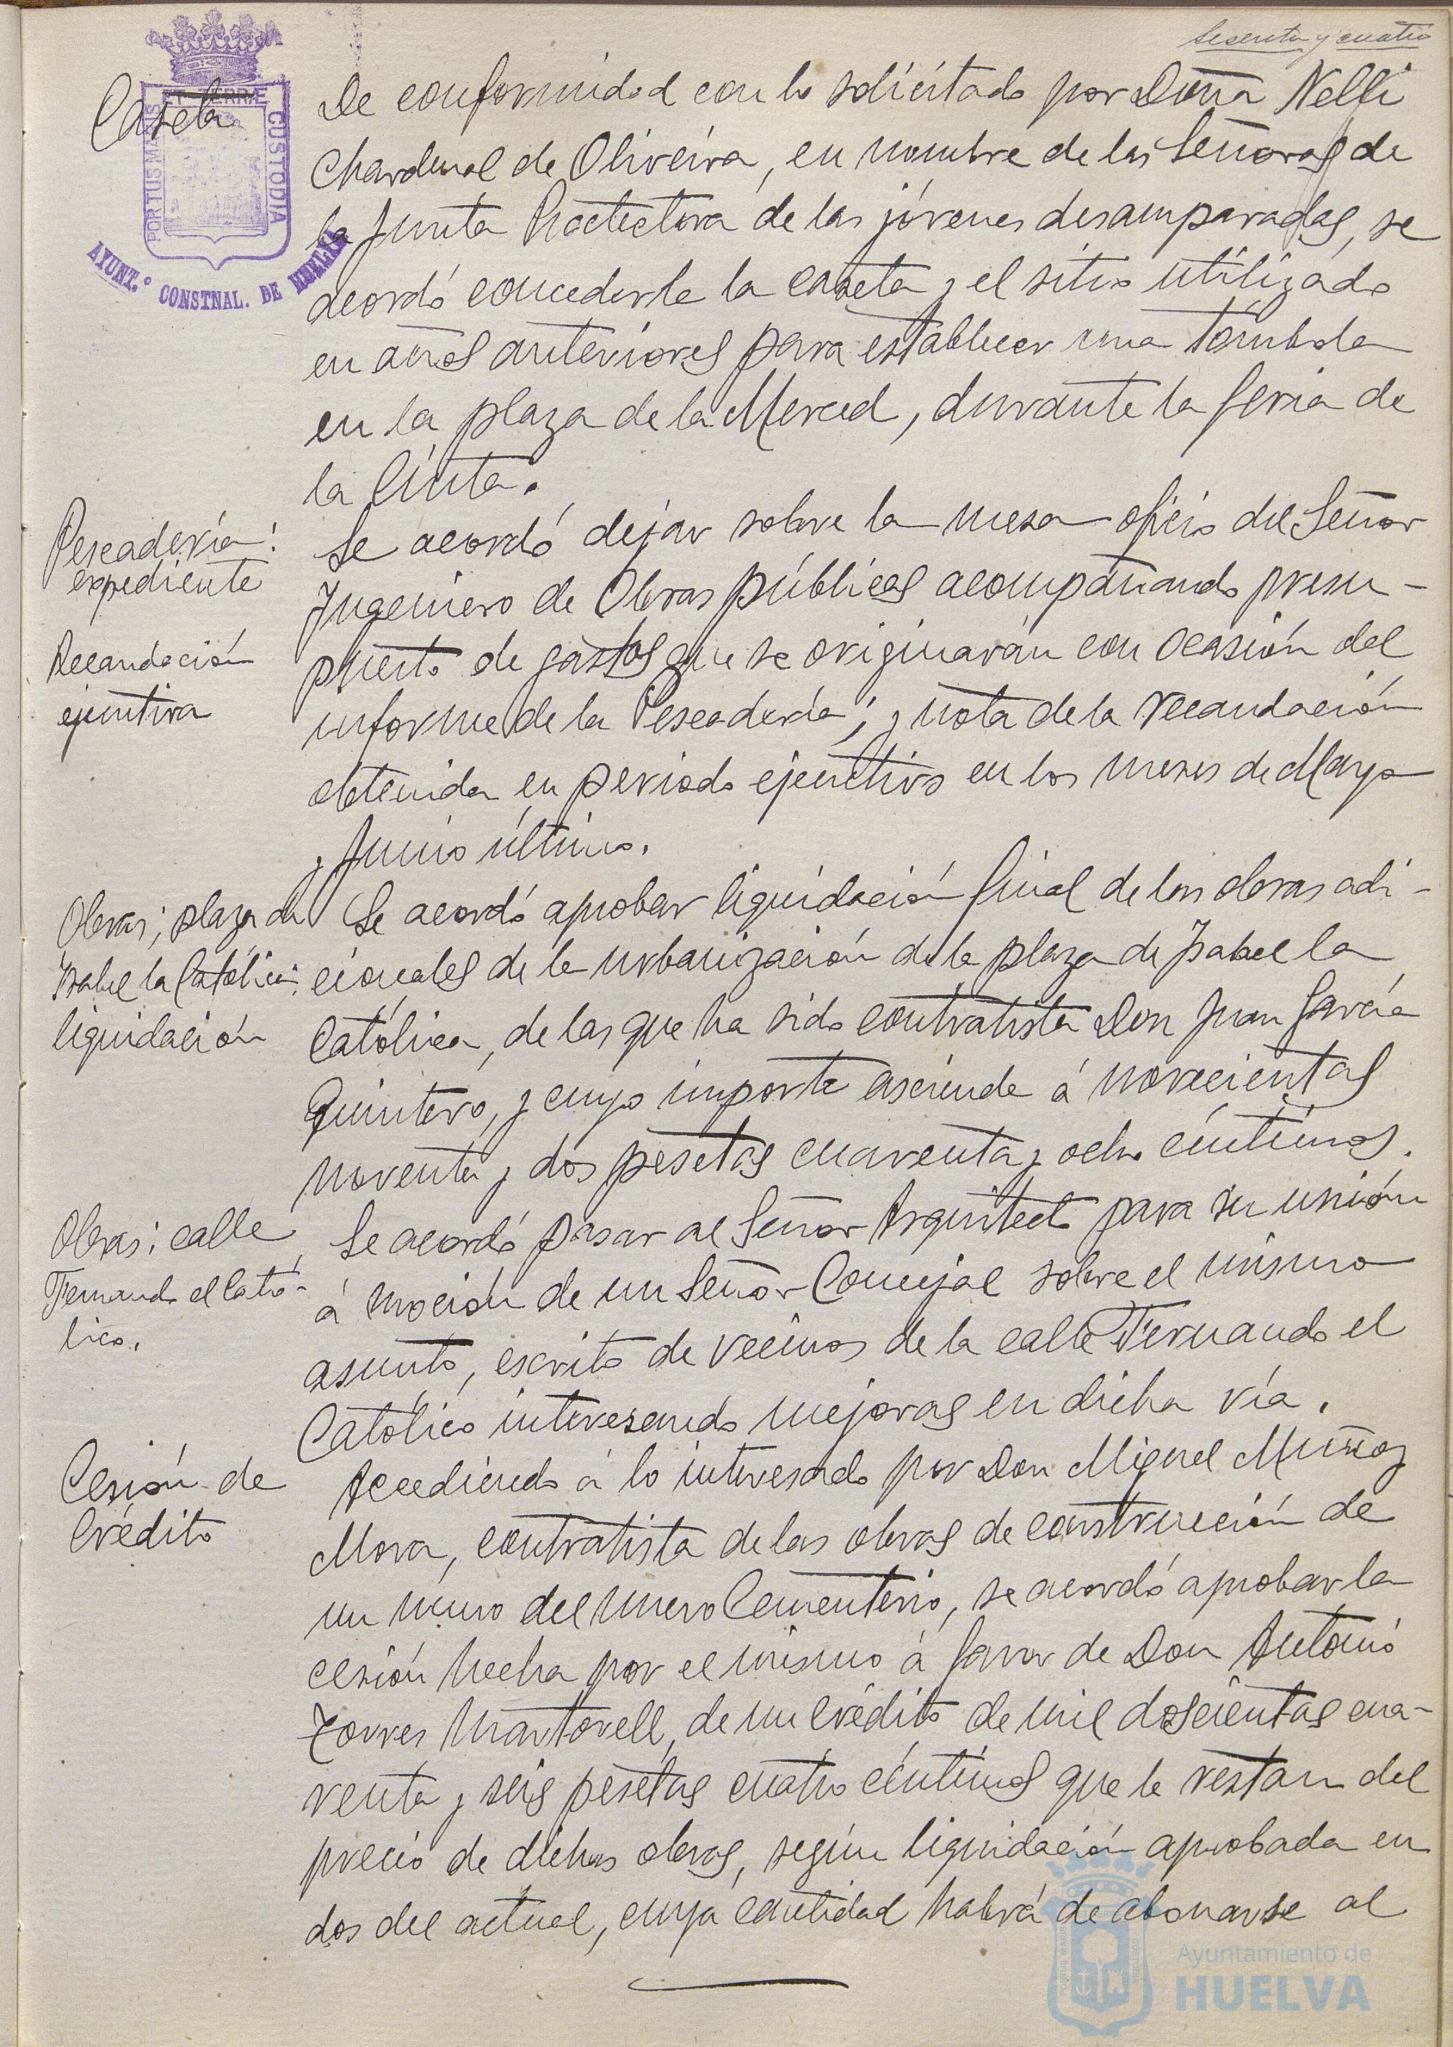 sesenta y cuatro
Caseta
PORTUS MARIS ET TERRÆ CUSTODIA
AYUNT.º CONSTNAL. DE HUELVA
De conformidad con lo solicitado por Doña Nelli
Chardenal de Oliveira, en nombre de las Señoras de
la Junta Protectora de las jóvenes desamparadas, se
acordó concederle la caseta y el sitio utilizado
en años anteriores para establecer una tómbola
en la plaza de la Merced, durante la feria de
la Cinta.
Pescadería:
expediente
Recaudación
ejecutiva
Se acordó dejar sobre la mesa oficio del Señor
Ingeniero de Obras públicas acompañando presu-
puesto de gastos que se originarán con ocasión del
informe de la Pescadería; y nota de la recaudación
obtenida en periodo ejecutivo en los meses de Mayo
y Junio último.
Obras; plaza de
Isabel la Católica:
liquidación
Se acordó aprobar liquidación final de las obras adi-
cionales de la urbanización de la plaza de Isabel la
Católica, de las que ha sido contratista Don Juan García
Quintero, y cuyo importe asciende á novecientas
noventa y dos pesetas cuarenta y ocho céntimos.
Obras; calle
Fernando el Cató-
lico.
Se acordó pasar al Señor Arquitecto para su unión
á moción de un Señor Concejal sobre el mismo
asunto, escrito de vecinos de la calle Fernando el
Católico interesando mejoras en dicha vía.
Cesión de
Crédito
Accediendo á lo interesado por Don Miguel Muñoz
Mora, contratista de las obras de construcción de
un muro del nuevo Cementerio, se acordó aprobar la
cesión hecha por el mismo á favor de Don Antonio
Torres Martorell, de un crédito de mil doscientas cua-
renta y seis pesetas cuatro céntimos que le restan del
precio de dichas obras, según liquidación aprobada en
dos del actual, cuya cantidad habrá de abonarse al
Ayuntamiento de
HUELVA